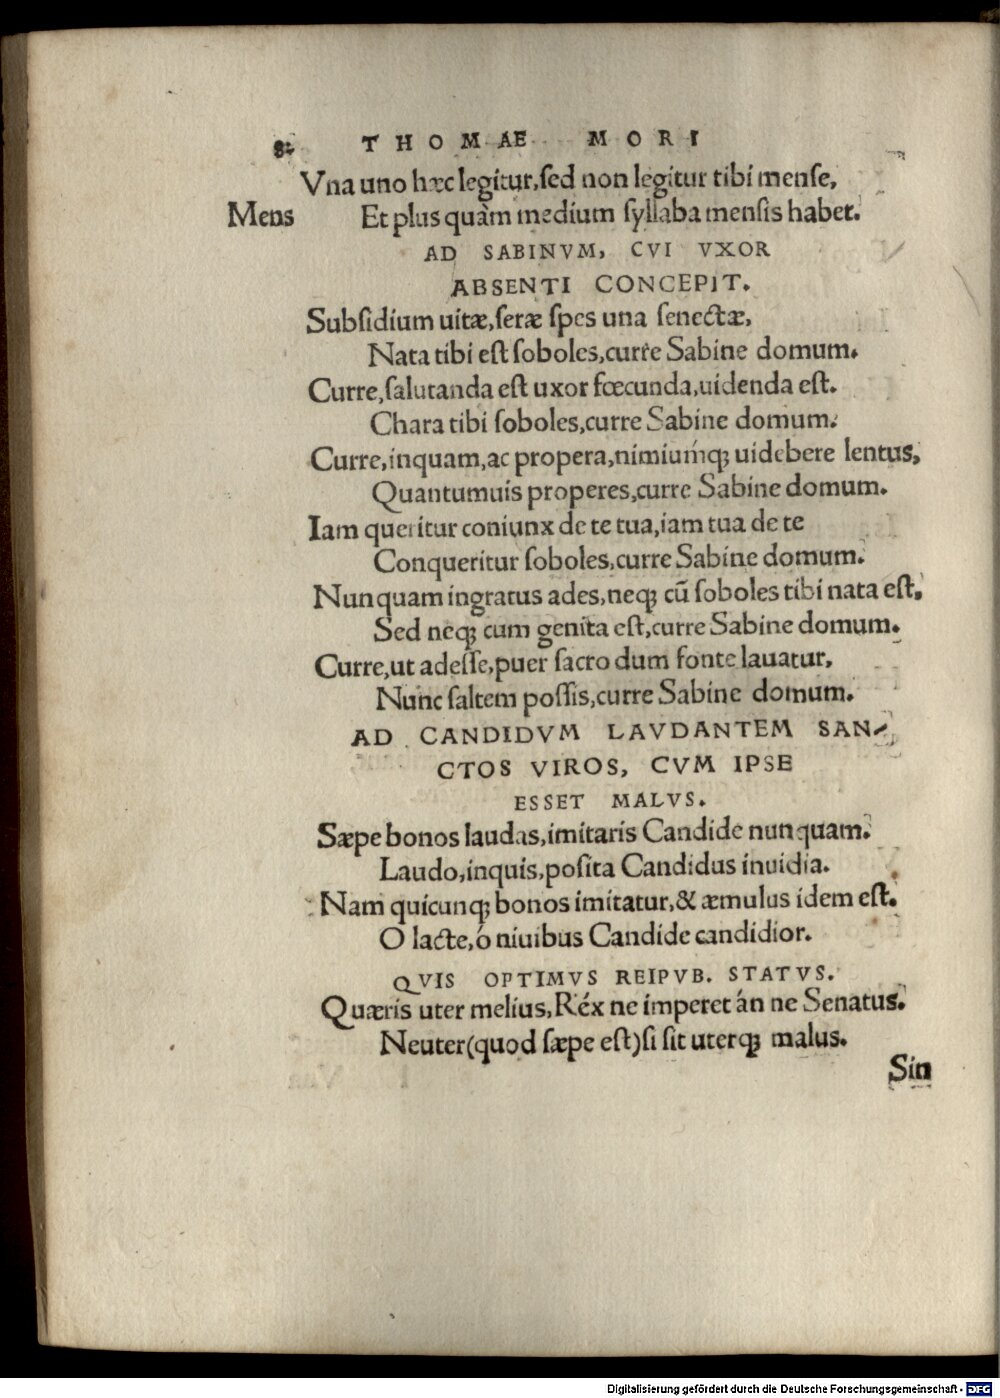 82 THOMAE MORI
Vna uno hæc legitur,sed non legitur tibi mense,
Mens Et plus quàm medium syllaba mensis habet.
AD SABINVM, CVI VXOR
ABSENTI CONCEPIT.
Subsidium uitæ,seræ spes una senectæ,
Nata tibi est soboles,curre Sabine domum.
Curre,salutanda est uxor fœcunda,uidenda est.
Chara tibi soboles,curre Sabine domum.
Curre,inquam,ac propera,nimiumq́; uidebere lentus,
Quantumuis properes,curre Sabine domum.
Iam queritur coniunx de te tua,iam tua de te
Conqueritur soboles,curre Sabine domum.
Nunquam ingratus ades,neq; cū soboles tibi nata est,
Sed neq; cum genita est,curre Sabine domum.
Curre,ut adesse,puer sacro dum fonte lauatur,
Nunc saltem possis,curre Sabine domum.
AD CANDIDVM LAVDANTEM SAN-
CTOS VIROS, CVM IPSE
ESSET MALVS.
Sæpe bonos laudas,imitaris Candide nunquam.
Laudo,inquis,posita Candidus inuidia.
Nam quicunq; bonos imitatur,& æmulus idem est.
O lacte,ó niuibus Candide candidior.
QVIS OPTIMVS REIPVB. STATVS.
Quæris uter melius,Réx ne imperet án ne Senatus.
Neuter(quod sæpe est)si sit uterq; malus.
Sin
Digitalisierung gefördert durch die Deutsche Forschungsgemeinschaft - DFG